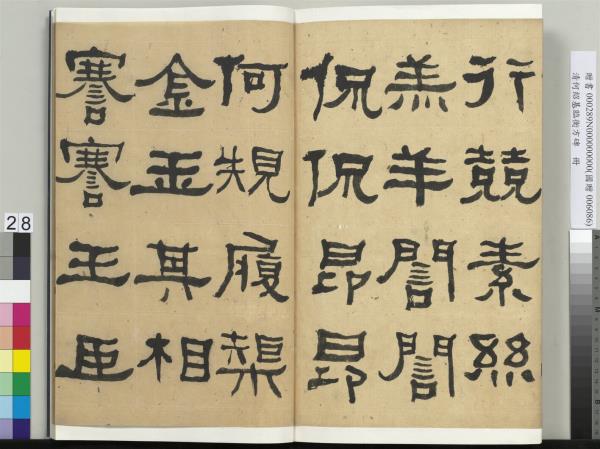 行競素絲
羔羊誾誾
侃侃昂昂
何規履榘
金玉其相
謇謇王臣
贈書 000289N000000000(國贈 006086)
清何紹基臨衡方碑 冊
28